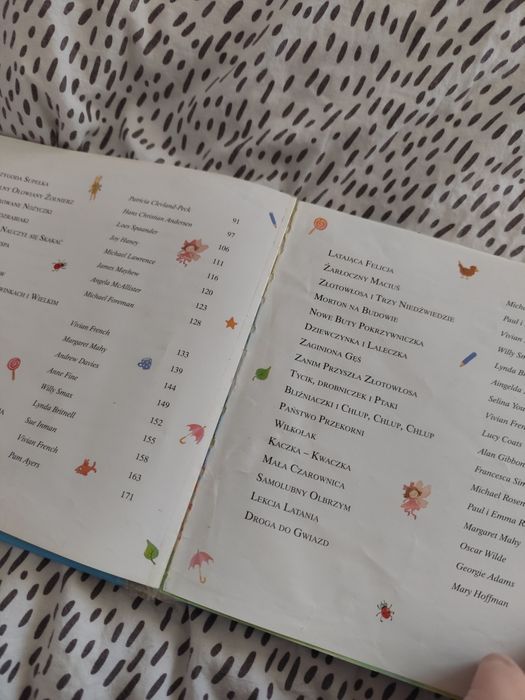 ZYGODA SUPEŁKA Patricia Cleveland-Peck 91
LNY OŁOWIANY ŻOŁNIERZ Hans Christian Andersen 97
OWANE NOŻYCZKI Loes Spaander 106
OZRABIAKI Joy Haney 111
NAUCZYŁ SIĘ SKAKAĆ Michael Lawrence 116
SPA James Mayhew 120
W Angela McAllister 123
WINKACH I WIELKIM Michael Foreman 128
Vivian French 133
Margaret Mahy 139
Andrew Davies 144
Anne Fine 149
Willy Smax 152
Lynda Britnell 155
Sue Inman 158
Vivian French 163
Pam Ayers 171
LATAJĄCA FELICJA
ŻARŁOCZNY MACIUŚ Mich
ZŁOTOWŁOSA I TRZY NIEDŹWIEDZIE Paul
MORTON NA BUDOWIE Vivian
NOWE BUTY POKRZYWNICZKA Willy S
DZIEWCZYNKA I LALECZKA Lynda B
ZAGINIONA GĘŚ Aingelda
ZANIM PRZYSZŁA ZŁOTOWŁOSA Selina Yo
TYCIK, DROBNICZEK I PTAKI Vivian Fren
BLIŹNIACZKI I CHLUP, CHLUP, CHLUP Lucy Coats
PAŃSTWO PRZEKORNI Alan Gibbon
WILKOŁAK Francesca Sim
KACZKA – KWACZKA Michael Rosen
MAŁA CZAROWNICA Paul i Emma R
SAMOLUBNY OLBRZYM Margaret Mahy
LEKCJA LATANIA Oscar Wilde
DROGA DO GWIAZD Georgie Adams
Mary Hoffman